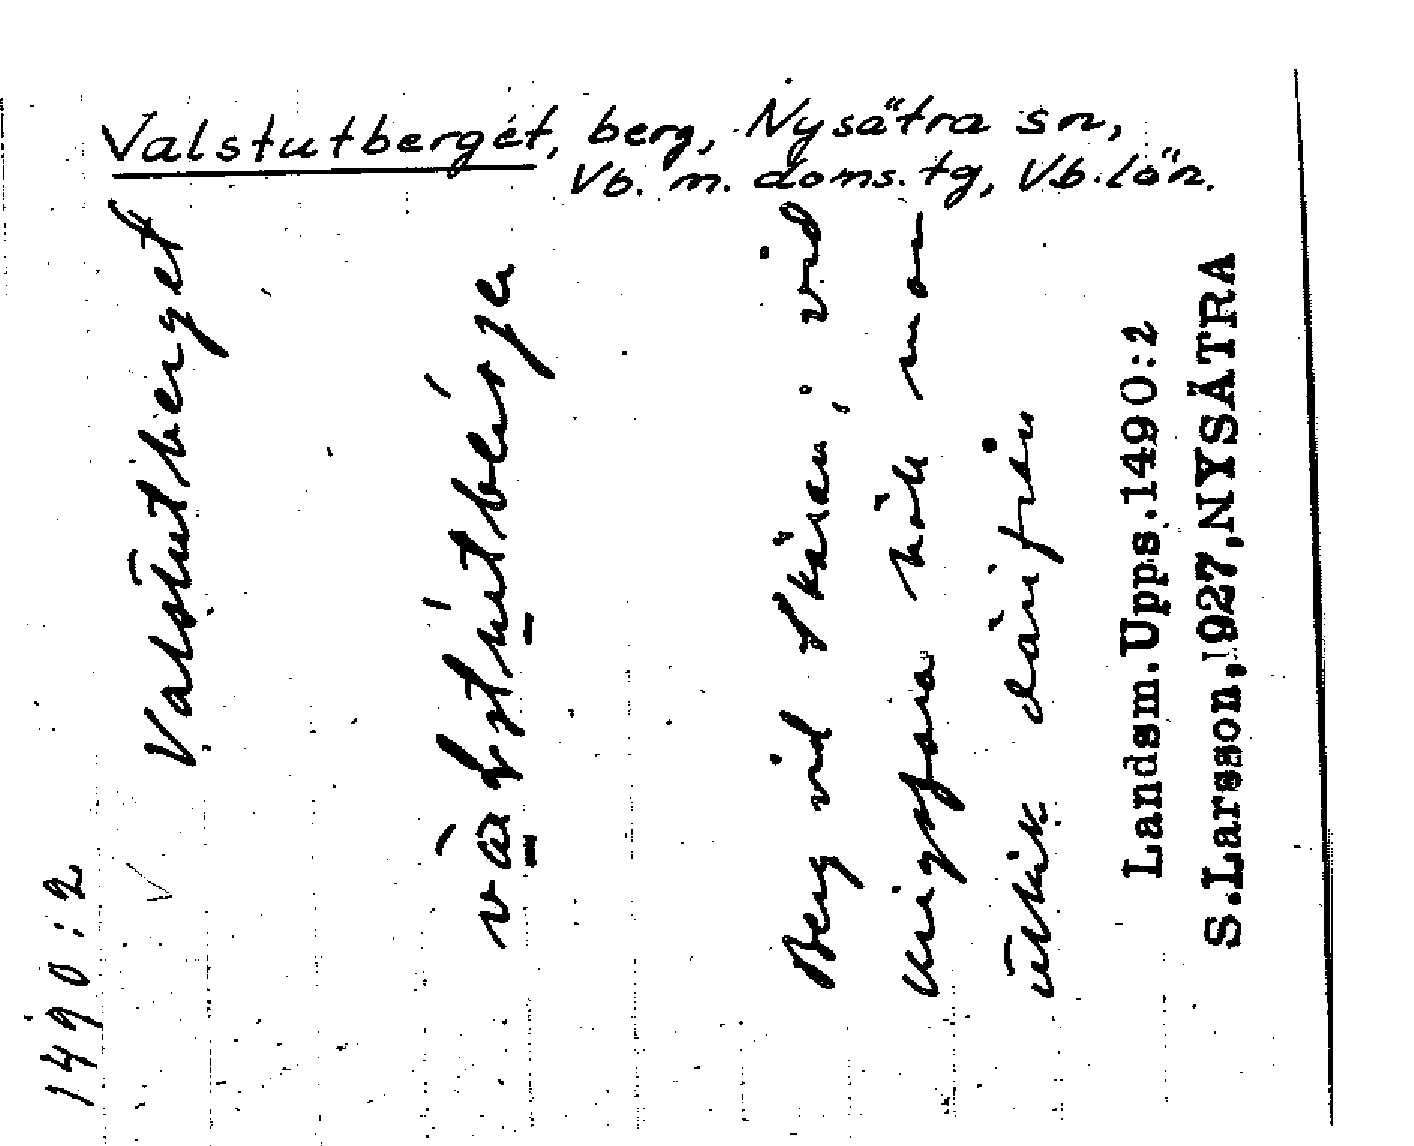 Valstutberget, berg, Nysätra sn,
Vb. m. doms. tg, Vb. län.
1490:2
Valstutberget
Berg vid Skäran, vid
krigsfara höll man
utkik därifrån
Landsm.Upps.1490:2
S.Larsson,1927,NYSÄTRA